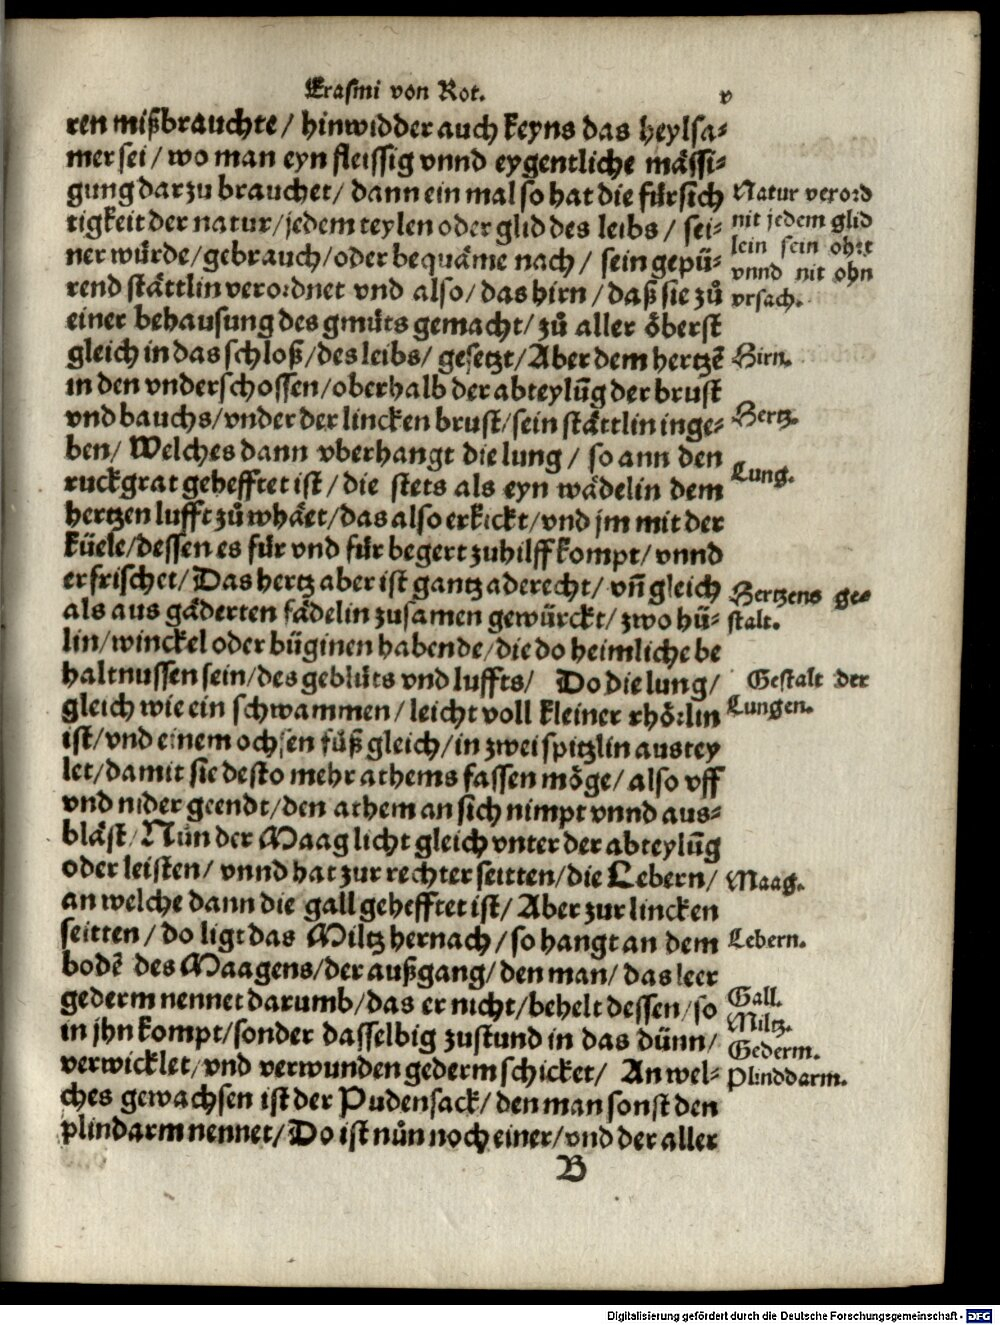 Erasmi von Rot. v
ren mißbrauchte/ hinwidder auch keyns das heylsa⸗
mer sei/ wo man eyn fleissig vnnd eygentliche mässi⸗
gung darzu brauchet/ dann ein mal so hat die fürsich
tigkeit der natur/ jedem teylen oder glid des leibs/ sei⸗
ner würde/ gebrauch/ oder bequäme nach/ sein gepü⸗
rend stättlin verordnet vnd also/ das hirn/ daß sie zů
einer behausung des gmüts gemacht/ zů aller öberst
gleich in das schloß/ des leibs/ gesetzt/ Aber dem hertzē
in den vnderschossen/ oberhalb der abteylūg der brust
vnd bauchs/ vnder der lincken brust/ sein stättlin inge⸗
ben/ Welches dann vberhangt die lung/ so ann den
ruckgrat gehefftet ist/ die stets als eyn wädelin dem
hertzen lufft zů whäet/ das also erkickt/ vnd jm mit der
küele/ dessen es für vnd für begert zuhilff kompt/ vnnd
erfrischet/ Das hertz aber ist gantz aderecht/ vn̄ gleich
als aus gäderten fädelin zusamen gewürckt/ zwo hü⸗
lin/ winckel oder büginen habende/ die do heimliche be
haltnussen sein/ des geblüts vnd luffts/ Do die lung/
gleich wie ein schwammen/ leicht voll kleiner rhörlin
ist/ vnd einem ochsen füß gleich/ in zwei spitzlin austey
let/ damit sie desto mehr athems fassen möge/ also vff
vnd nider geendt/ den athem an sich nimpt vnnd aus⸗
bläst/ Nůn der Maag licht gleich vnter der abteylūg
oder leisten/ vnnd hat zur rechter seitten/ die Lebern/
an welche dann die gall gehefftet ist/ Aber zur lincken
seitten/ do ligt das Miltz hernach/ so hangt an dem
bodē des Maagens/ der außgang/ den man/ das leer
gederm nennet darumb/ das er nicht/ behelt dessen/ so
in jhn kompt/ sonder dasselbig zustund in das dünn/
verwicklet/ vnd verwunden gederm schicket/ An wel⸗
ches gewachsen ist der Pudensack/ den man sonst den
plindarm nennet/ Do ist nůn noch einer/ vnd der aller
B
Natur verord
nit jedem glid
lein sein ohrt
vnnd nit ohn
vrsach.
Hirn.
Hertz.
Lung.
Hertzens ge⸗
stalt.
Gestalt der
Lungen.
Maag.
Lebern.
Gall.
Miltz.
Gederm.
Plinddarm.
Digitalisierung gefördert durch die Deutsche Forschungsgemeinschaft - DFG